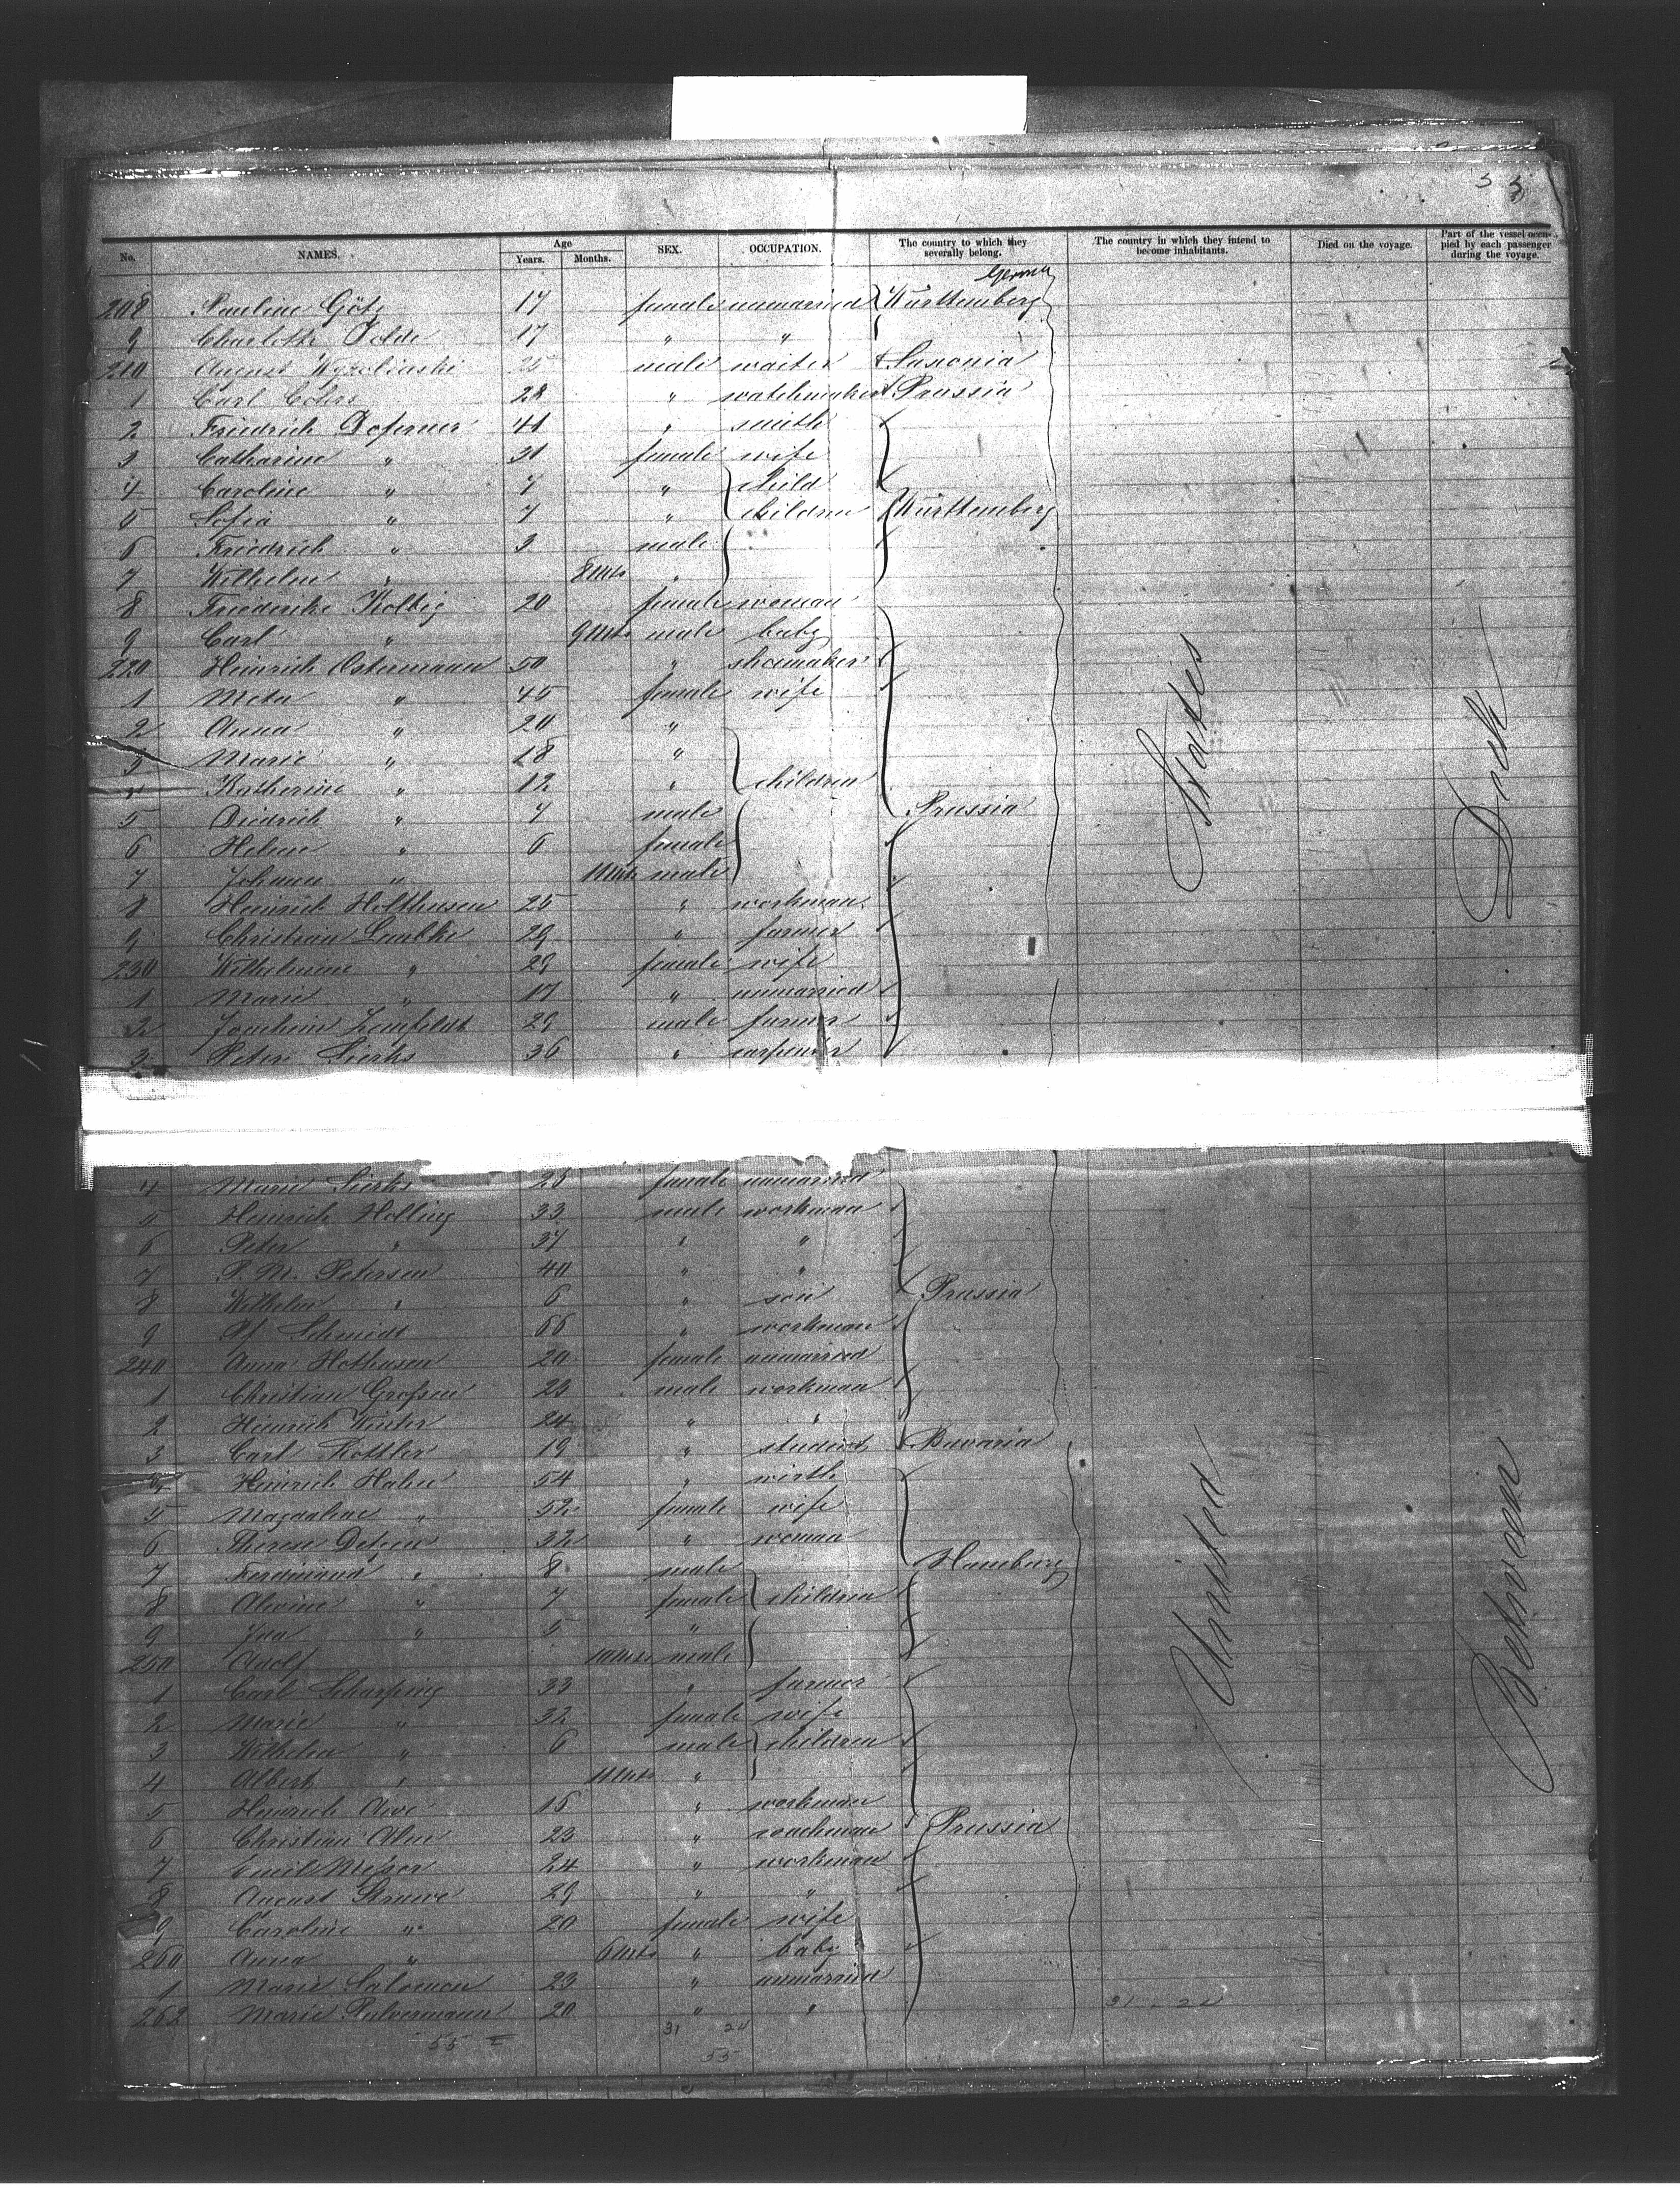 33
No. NAMES. Age Years. Months. SEX. OCCUPATION. The country to which they severally belong. The country in which they intend to become inhabitants. Died on the voyage. Part of the vessel occupied by each passenger during the voyage.
208 Pauline Götz 17 female unmarried Württemberg
9 Charlotte 17 " "
210 August 25 male waiter Saxonia
1 Carl 28 " watchmaker Prussia
2 Friedrich 41 " smith
3 Catharine " 31 female wife
4 Caroline " 7 " child
5 Sofia " 7 " children Württemberg
6 Friedrich " 3 male
7 Wilhelm " 8 Mts "
8 Friederike Kolbig 20 female woman
9 Carl " 9 Mts male baby
220 Heinrich Ostermann 50 " shoemaker
1 Meta " 45 female wife
2 Anna " 20 "
3 Marie " 18 "
4 Katherine " 12 " children
5 Diedrich " 7 male Prussia
6 Helene " 6 female
7 Johann " 11 Mts male
8 Heinrich Holthusen 25 " workman
9 Christian 29 " farmer
230 Wilhelmine " 29 female wife
1 Marie " 17 " unmarried
2 Joachim 29 male farmer
3 Peter Sierks 36 " carpenter
4 Marie Sierks 26 female unmarried
5 Heinrich Holling 33 male workman
6 Peter " 37 " "
7 P. M. Petersen 40 " "
8 Wilhelm " 6 " son Prussia
9 Schmidt 66 " workman
240 Anna Hothusen 20 female unmarried
1 Christian Großen 23 male workman
2 Heinrich Winter 24 " "
3 Carl Kottler 19 " student Bavaria
4 Heinrich Hahn 54 " wirth
5 Magdalene " 52 female wife
6 Therese Detjen 32 " woman
7 Ferdinand " 8 male Hamburg
8 Alwine " 7 female children
9 Ida " 5 "
250 Adolf 10 Mts male
1 Carl Scharping 33 " farmer
2 Marie " 32 female wife
3 Wilhelm " 6 male children
4 Albert " 11 Mts "
5 Heinrich 16 " workman
6 Christian 23 " coachman Prussia
7 Emil 24 " workman
8 August Struwe 29 " "
9 Caroline " 20 female wife
260 Anna " 6 Mts " baby
1 Marie Salomon 23 " unmarried
262 Marie Pulvermann 20 " "
31 24
55
55
United States
Between Deck